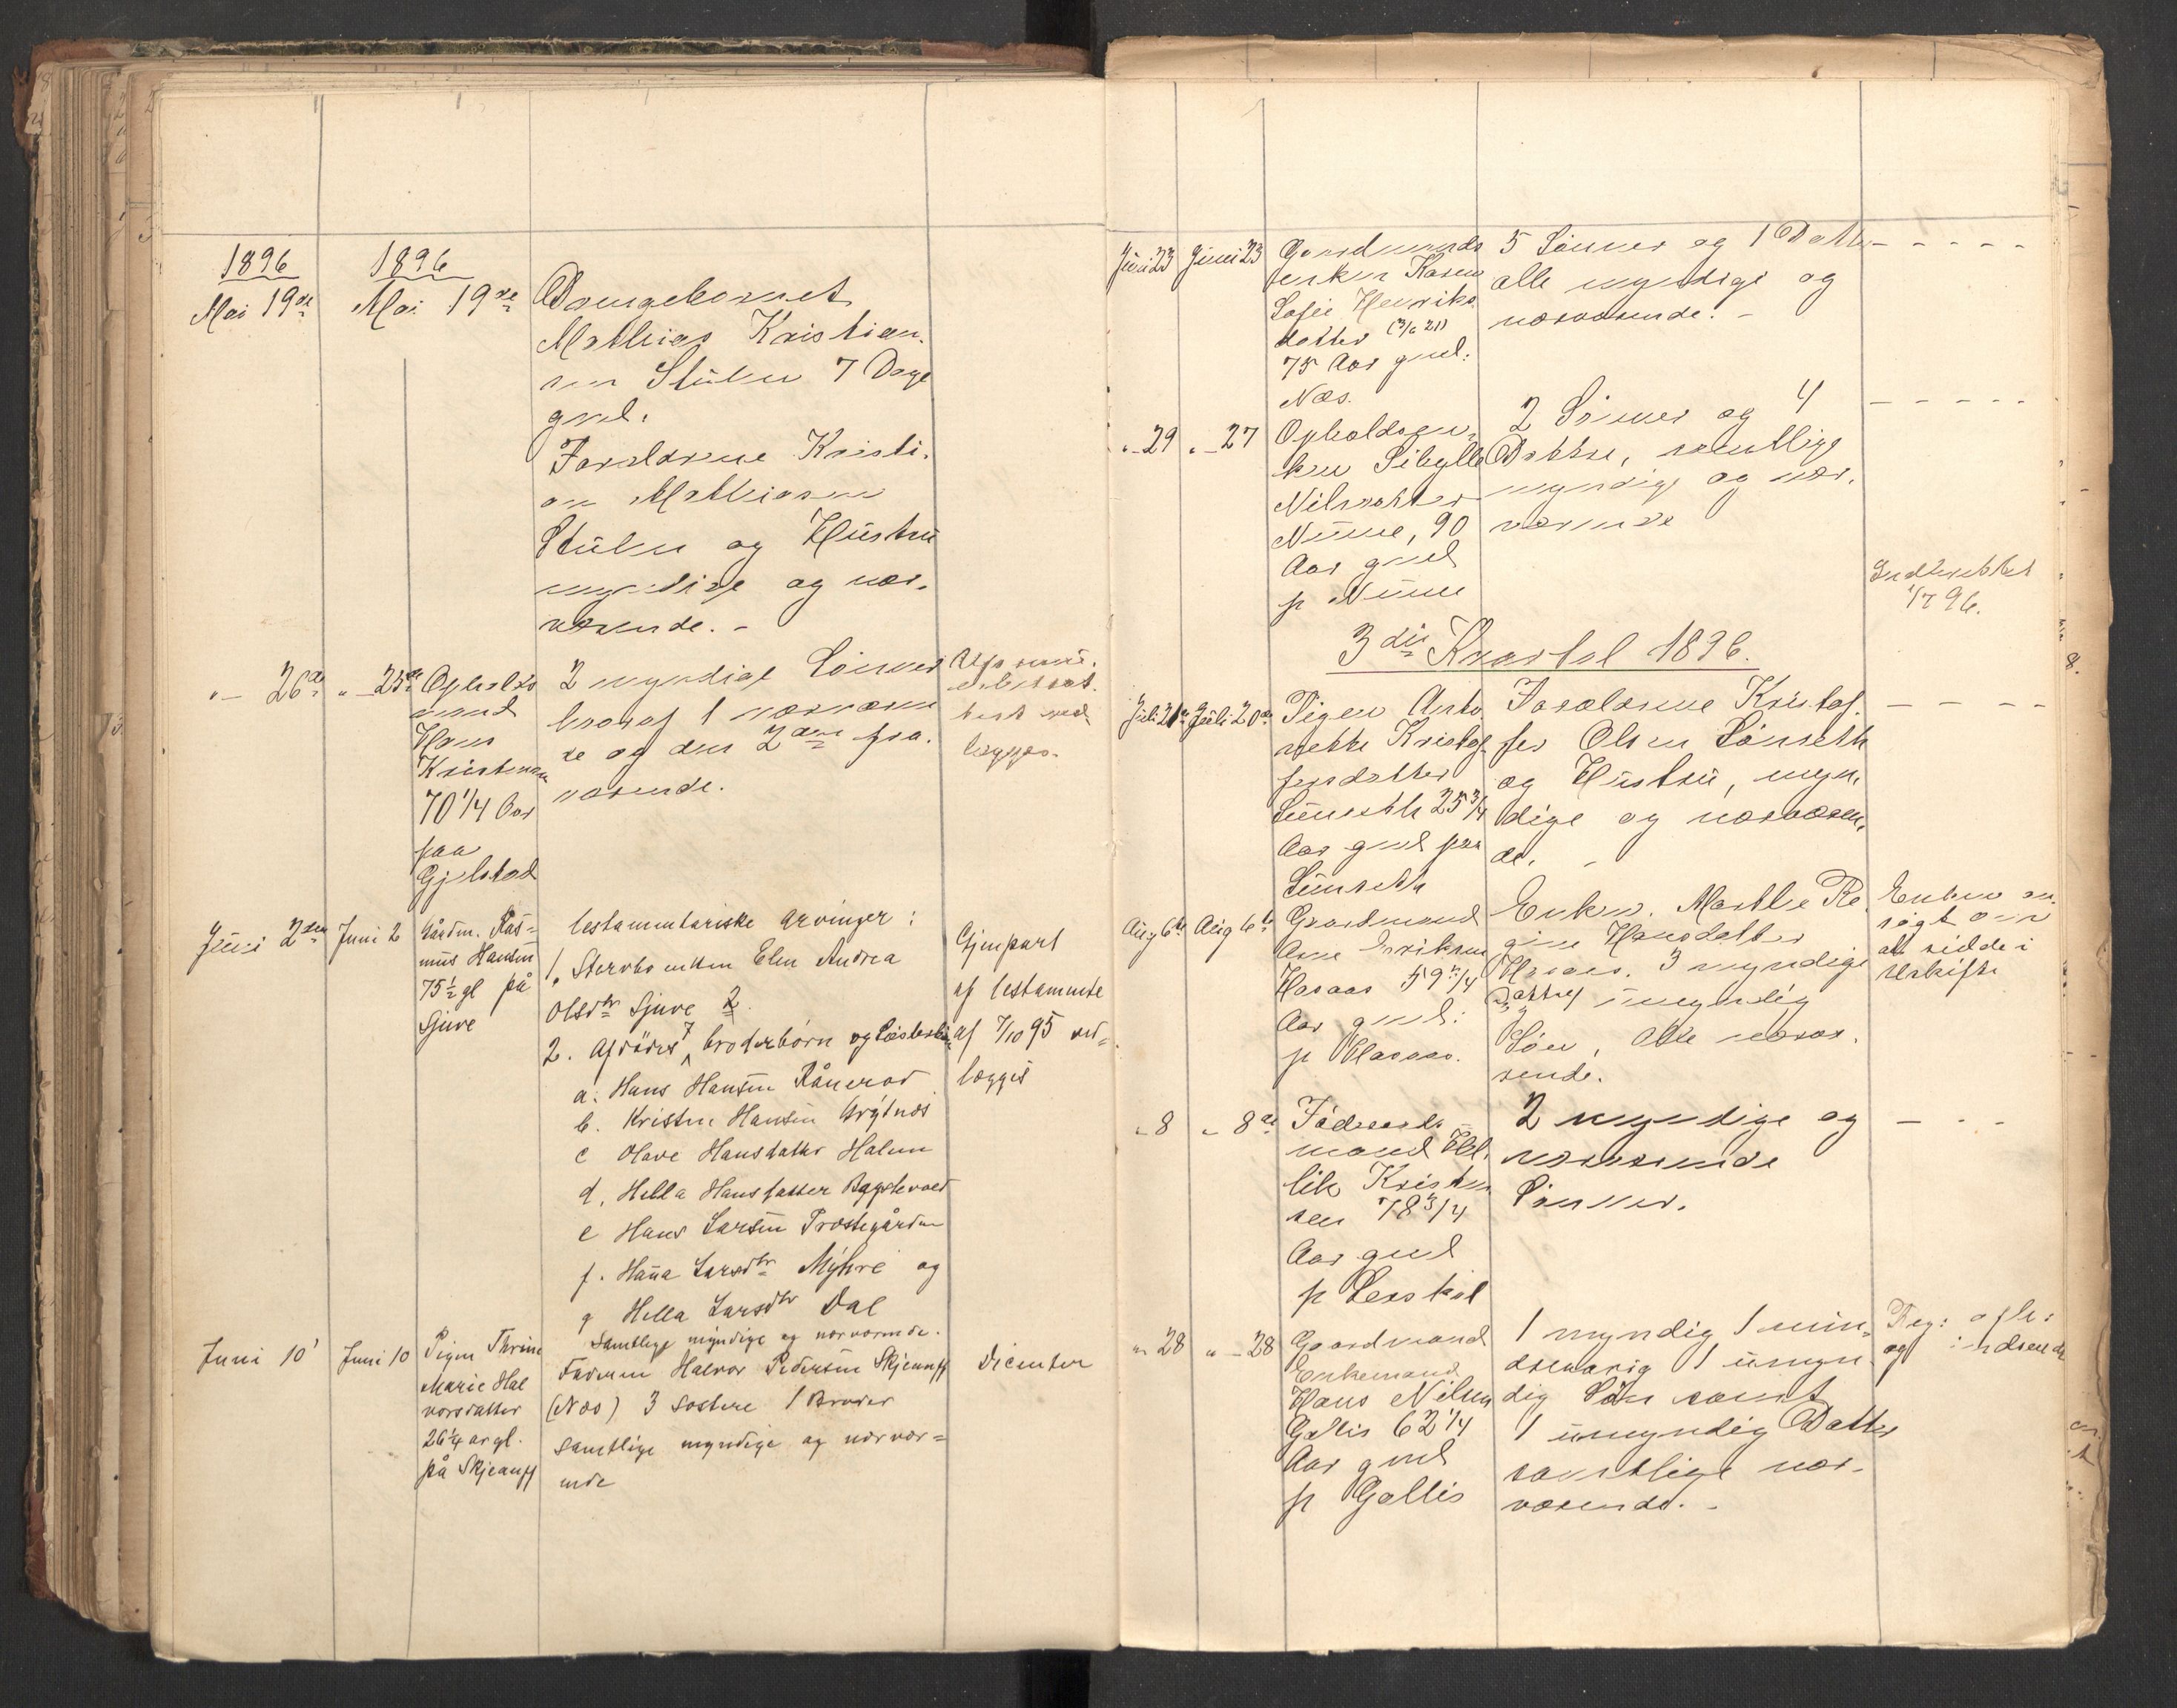 1896
1896
Mai 19de
Mai 19de
Drengebarnet
Mathias Kristian-
sen Stulen 7 Dage
gml.
Forældrene Kristi-
an Mathiasen
Stulen og Hustru
myndige og nær-
værende. -
"- 26de
"- 25de
Opholds
mand
Hans
Kristensen
70 1/4 Aar
paa
Gjelstad
2 myndige Sønner
hvoraf 1 nærværen
de og den 2den fra-
værende.
lægges.
Juni 2den
Juni 2
Gårdm. Ras=
mus Hansen
75½ gl på
Sjuve
testamentariske arvinger:
1. Sterbo enken Elen Andrea
Olsdtr Sjuve 2
2. Afdødes 7 broderbørn og Søsterbørn
a. Hans Hansen Rånerød
b. Kristen Hansen Grytnes
c Olave Hansdatter Halum
d. Hella Hansdatter Bøgstevold
e Hans Larsen Prestegården
f. Hana Larsdtr Myhre og
g Hella Larsdtr Dal
Samtlige myndige og nærværende.
Gjenpart
af testamente
af 7/10 95 ved=
lægges
Juni 10
Juni 10
Pigen Thrine
Marie Hal
vorsdatter
26¼ ar gl.
på Skjeauff
Faderen Halvor Pedersen Skjeauff
(Næs) 3 Søstere 1 Broder
samtlige myndige og nærvær=
ende
Juni 23
Juni 23
Gaardmands
enken Karen
Sofie Henriks
datter (3/6 21)
75 Aar gml:
Næs.
5 Sønner og 1 Datter
alle myndige og
nærværende. -
- - - - -
"- 29
"- 27
Opholdsen-
ken Sibylle
Nilsdatter
Nume, 90
Aar gml
p Nume
2 Sønner og 4
Døttre, samtlige
myndige og nær-
værende
- - - - -
Indberettet
1/7 96.
3die Kvartal 1896.
Juli 21de
Juli 20de
Pigen Anto-
nette Kristof-
fersdatter
Sunseth 25 3/4
Aar gml paa
Sunseth
Forældrene Kristof-
fer Olsen Sunseth
og Hustru, myn-
dige og nærværen-
de. -
- - - -
Aug 6te
Aug 6te
Gaardmand
Arne Eriksen
Haraas 59 3/4
Aar gml:
p Haraas.
Enken. Marthe Re-
gine Hansdatter
Haraas. 3 myndige
Døttre 1 umyndig
Søn, Alle nærvæ-
rende.
Enken an-
søgt om
at sidde i
Uskifte
"- 8
"- 8de
Føderaads-
mand
Kristen
sen 78 3/4
Aar gml
p Lerskal
2 myndige og
nærværende
Sønner.
- - -
"- 28
"- 28
Gaardmand
Enkemand
Hans Nilsen
Gallis 62 1/4
Aar gml
p Gallis
1 myndig 1 min-
dreaarig 1 umyn-
dig Søn samt
1 umyndig Datter
samtlige nær-
værende. -